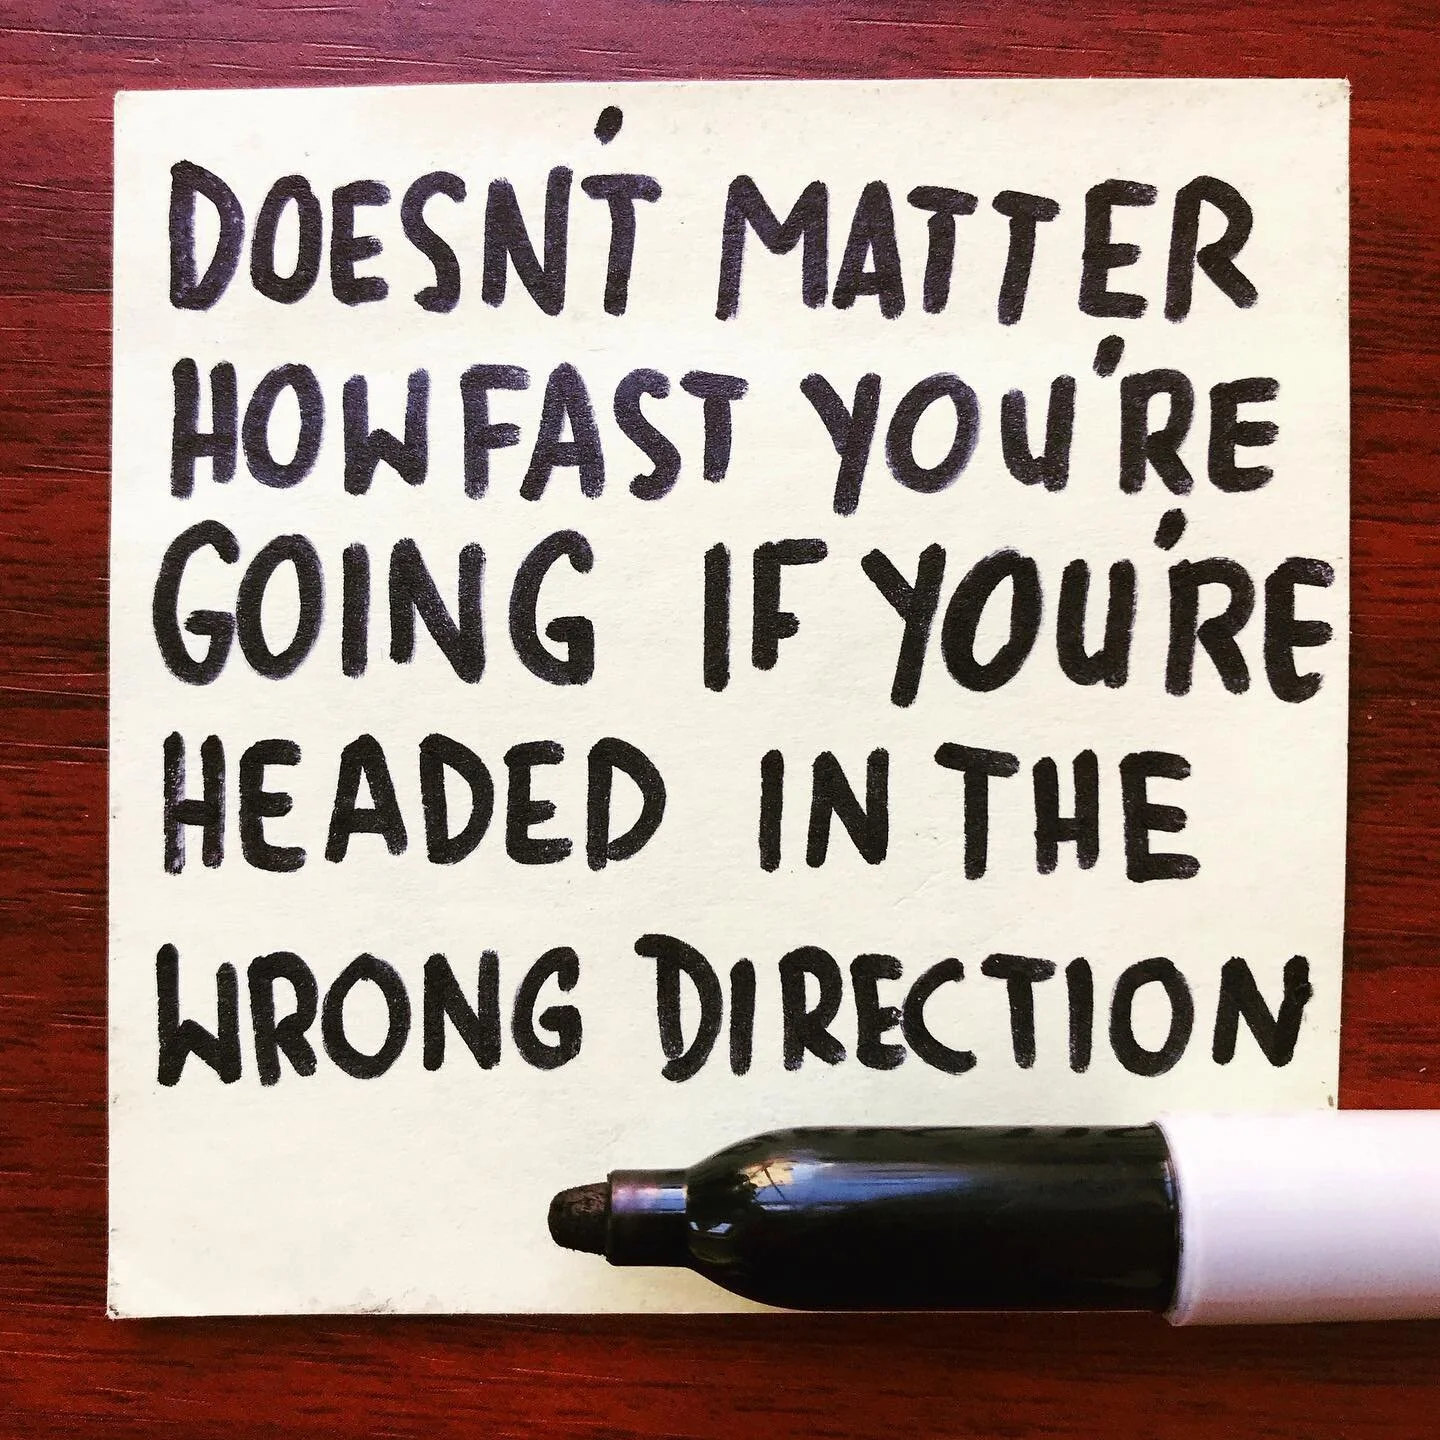 DOESN'T MATTER
HOW FAST YOU'RE
GOING IF YOU'RE
HEADED IN THE
WRONG DIRECTION